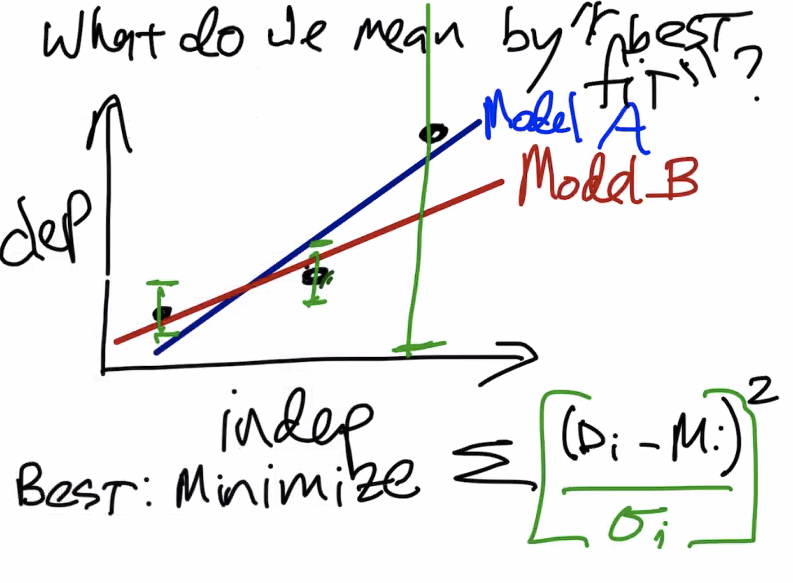 What do we mean by "best
fit"?
Model A
Model B
dep
indep
Best: Minimize Σ [(Di - Mi) / σi]²